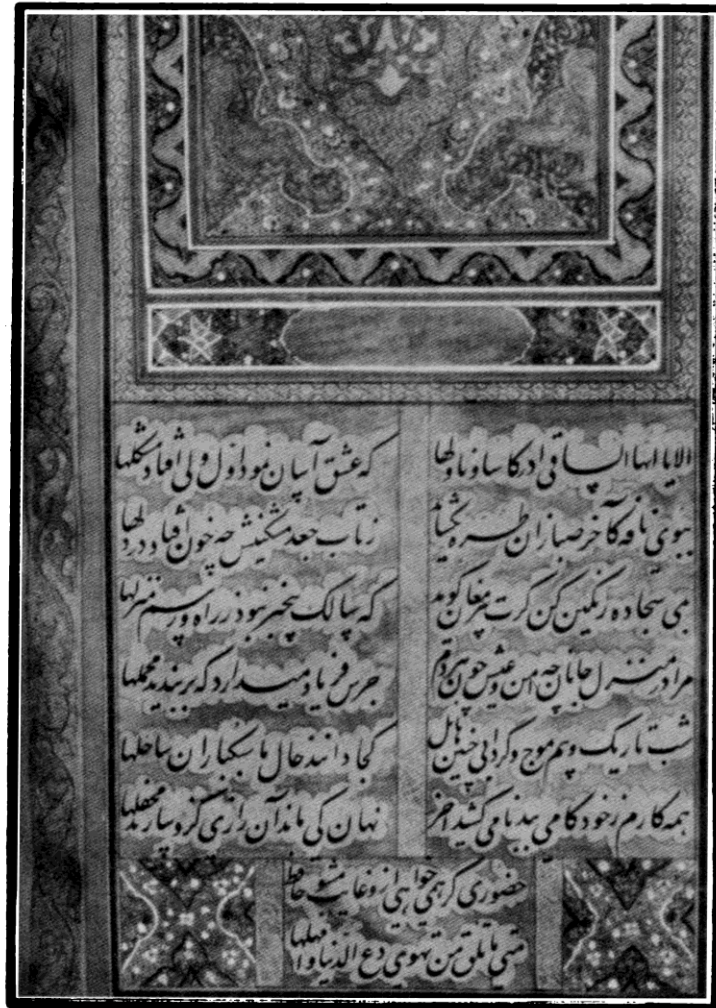 الا یا ایها الساقی ادر کاسا و ناولها که عشق آسان نمود اول ولی افتاد مشکلها
ببوی نافه کآخر صبا زان طره بگشاید ز تاب جعد مشکینش چه خون افتاد در دلها
بمی سجاده رنگین کن گرت پیر مغان گوید که سالک بیخبر نبود ز راه و رسم منزلها
مرا در منزل جانان چه امن و عیش چون هر دم جرس فریاد میدارد که بربندید محملها
شب تاریک و بیم موج و گردابی چنین هایل کجا دانند حال ما سبکباران ساحلها
همه کارم ز خود کامی ببدنامی کشید آخر نهان کی ماند آن رازی کزو سازند محفلها
حضوری گر همی خواهی ازو غایب مشو حافظ
متی ما تلق من تهوی دع الدنیا و اهملها